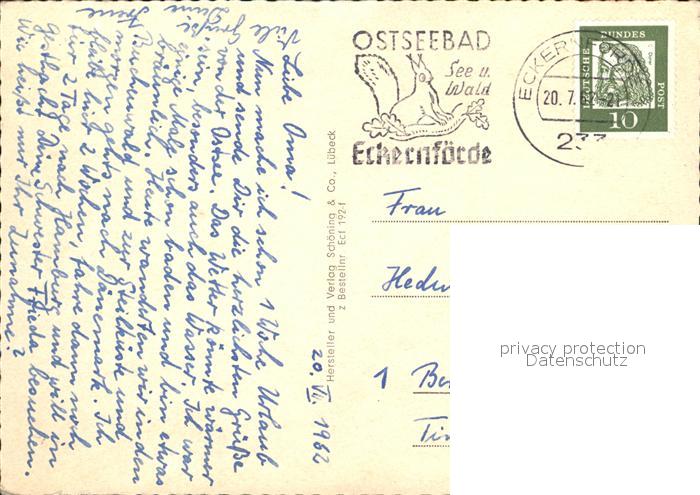 OSTSEEBAD
See u.
Wald
Eckernförde
ECKERNFÖRDE
20.7.62-21
233
DEUTSCHE BUNDESPOST
10
20. VII. 1962
Liebe Oma!
Nun mache ich schon 1 Woche Urlaub
und sende Dir die herzlichsten Grüße
von der Ostsee. Das Wetter könnte wärmer
sein, besonders auch das Wasser. Ich war
einige Male schon baden und bin etwas
bräunlich. Heute wanderten wir in den
Buchenwald und zur Steilküste und
morgen geht's nach Dänemark. Ich
bleibe hier 2 Wochen, fahre dann noch
für 2 Tage nach Hamburg und will in
Deine Schwester Frieda besuchen.
Wie heißt nur Ihr Zuname?
Viele Grüße
Deine
Hersteller und Verlag Schöning & Co., Lübeck
z Bestellnr Ecf 192-f
Frau
Hedw
1 Be
privacy protection
Datenschutz